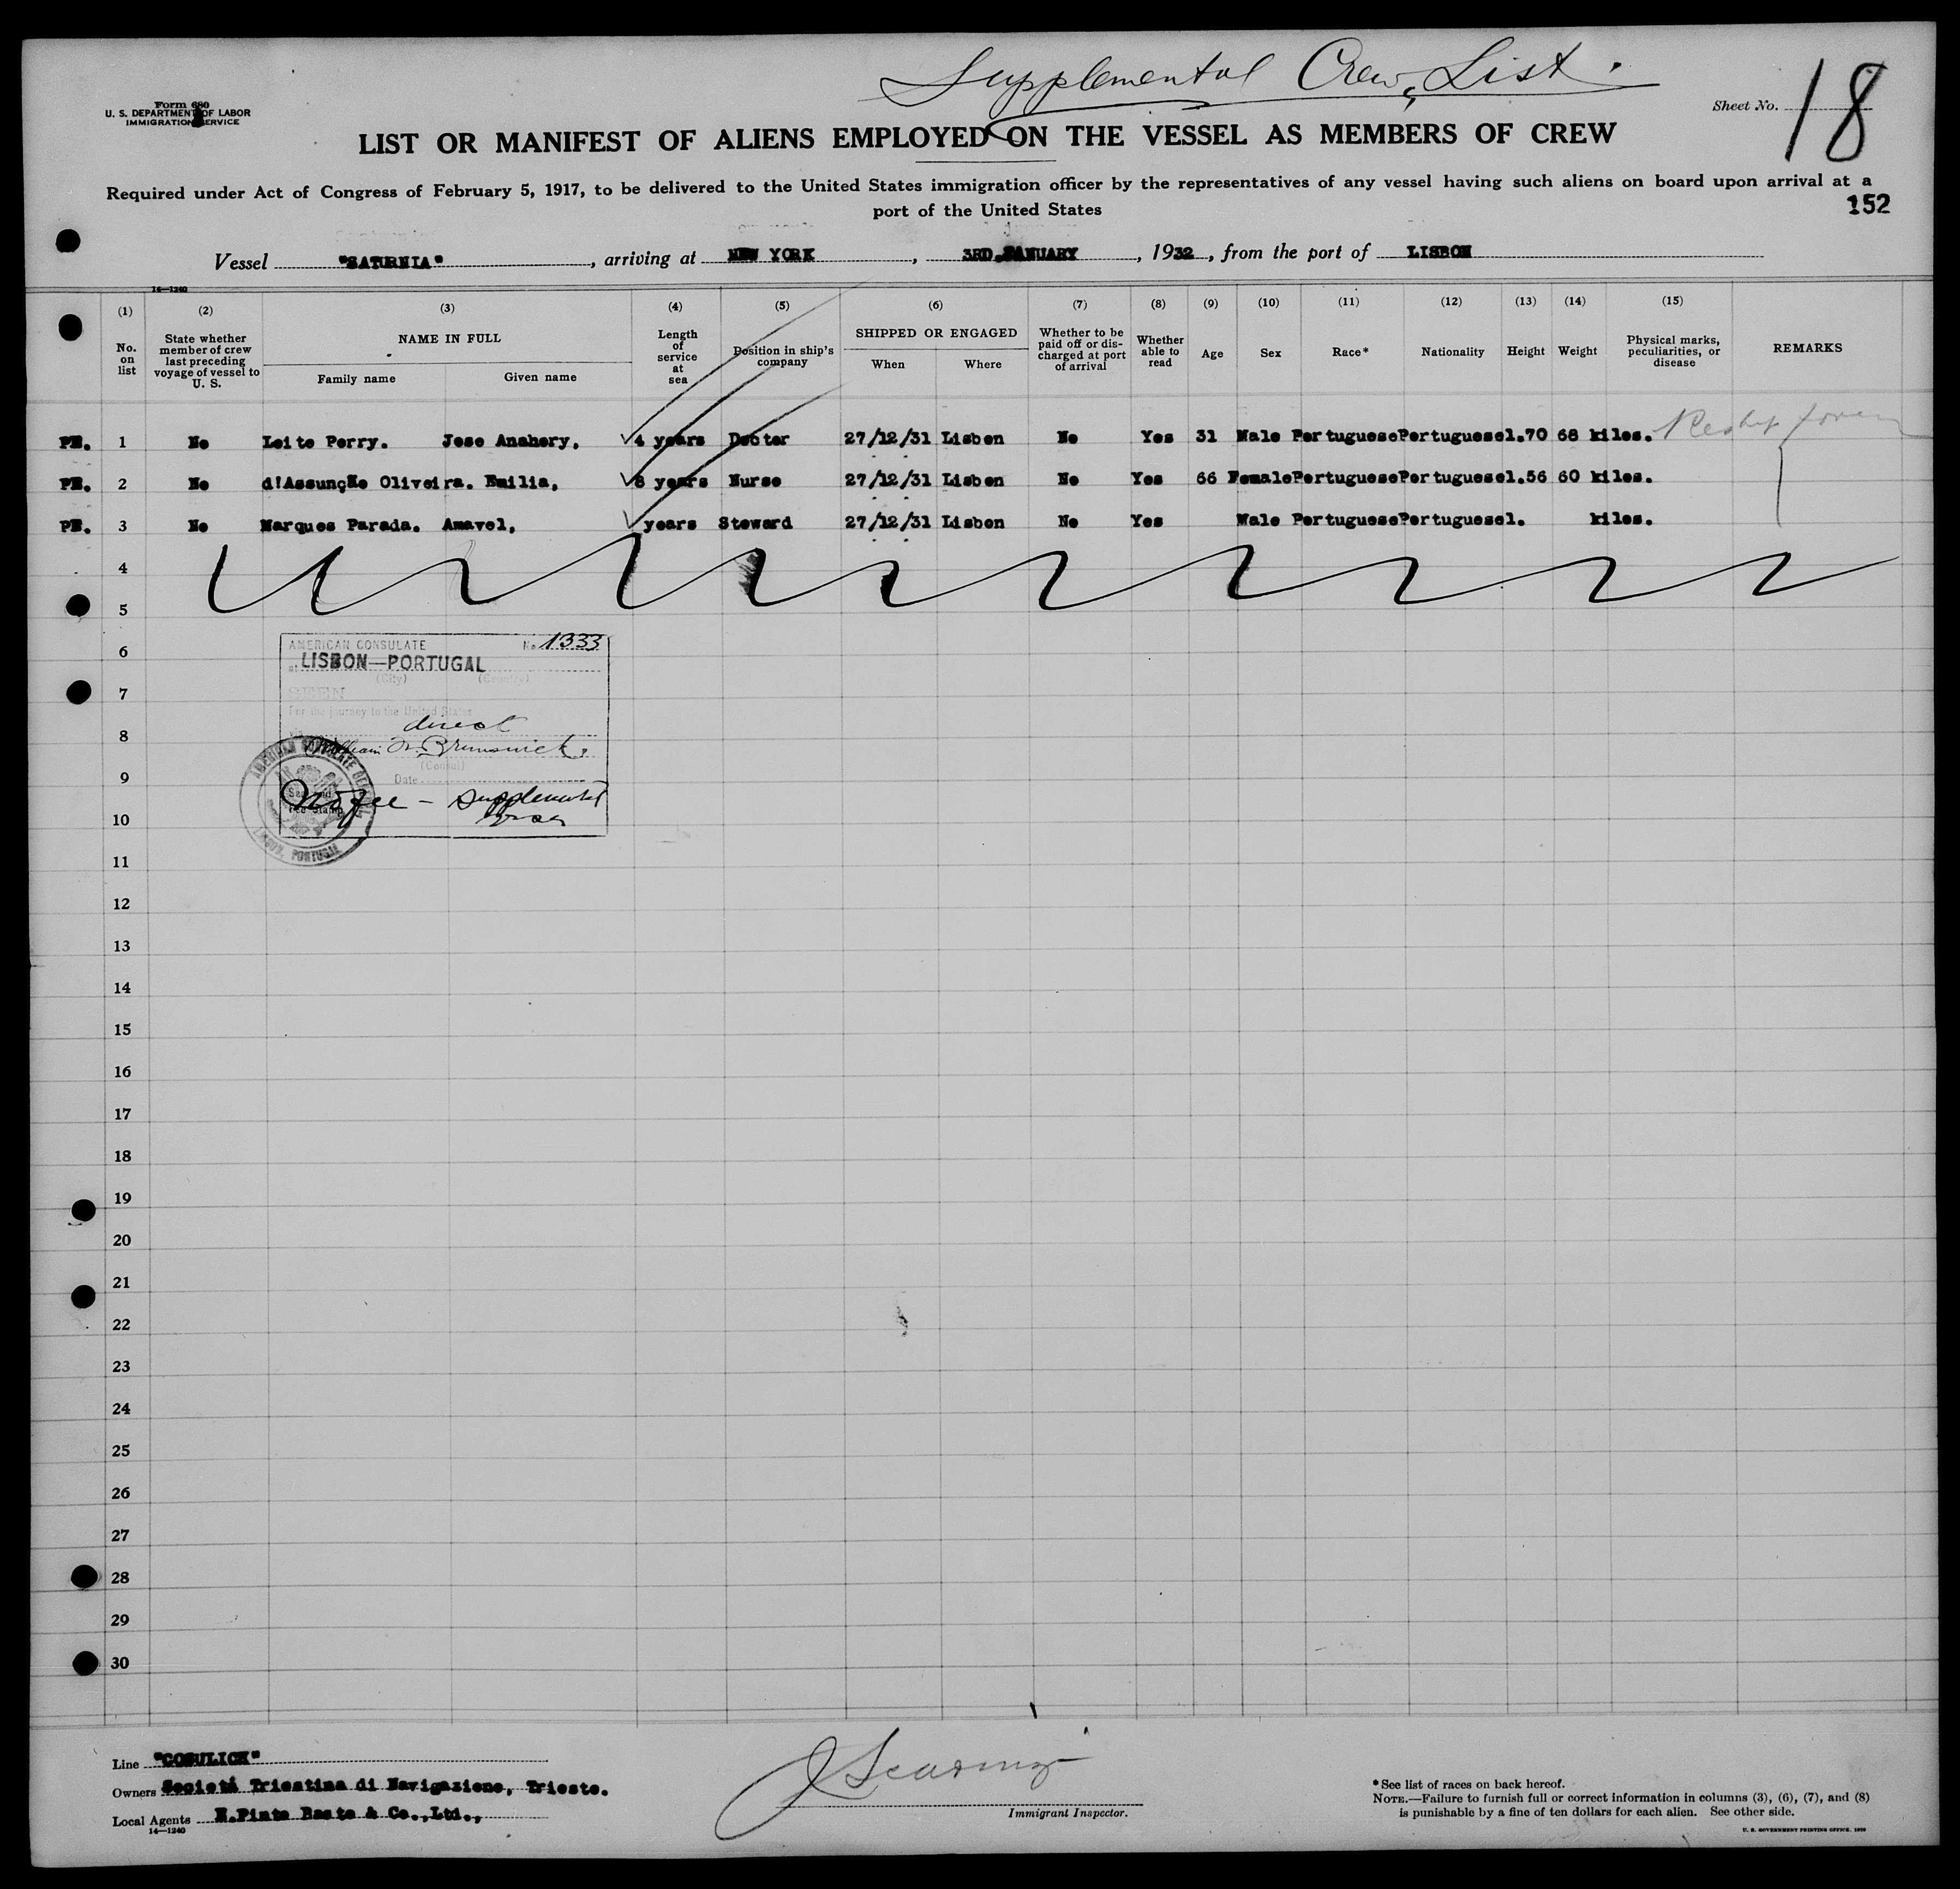 Supplemental Crew List.
Form 680
U. S. DEPARTMENT OF LABOR
IMMIGRATION SERVICE
Sheet No. 18
LIST OR MANIFEST OF ALIENS EMPLOYED ON THE VESSEL AS MEMBERS OF CREW
Required under Act of Congress of February 5, 1917, to be delivered to the United States immigration officer by the representatives of any vessel having such aliens on board upon arrival at a
port of the United States
152
Vessel "SATURNIA", arriving at NEW YORK, 3RD.JANUARY, 1932, from the port of LISBON
14—1240
(1) (2) (3) (4) (5) (6) (7) (8) (9) (10) (11) (12) (13) (14) (15)
No. on list
State whether member of crew last preceding voyage of vessel to U. S.
NAME IN FULL
Family name Given name
Length of service at sea
Position in ship's company
SHIPPED OR ENGAGED
When Where
Whether to be paid off or discharged at port of arrival
Whether able to read
Age Sex Race* Nationality Height Weight
Physical marks, peculiarities, or disease
REMARKS
PE. 1 No Leite Perry. Jose Anahory, 4 years Doctor 27/12/31 Lisbon No Yes 31 Male Portuguese Portuguese 1.70 68 kilos. Reship
PE. 2 No d'Assunção Oliveira. Emilia, 8 years Nurse 27/12/31 Lisbon No Yes 66 Female Portuguese Portuguese 1.56 60 kilos.
PE. 3 No Marques Parada. Amavel, years Steward 27/12/31 Lisbon No Yes Male Portuguese Portuguese 1. kilos.
4
5
6
7
8
9
10
11
12
13
14
15
16
17
18
19
20
21
22
23
24
25
26
27
28
29
30
AMERICAN CONSULATE No. 1333
at LISBON—PORTUGAL
(City) (Country)
SEEN
For the journey to the United States
direct
William Brunswick
(Consul)
Date
No fee — supplemental
AMERICAN CONSULATE GENERAL
LISBON, PORTUGAL
Line "COSULICH"
Owners Societá Triestina di Navigazione, Trieste.
Local Agents E.Pinto Basto & Co.,Ltd.,
14—1240
Immigrant Inspector.
* See list of races on back hereof.
NOTE.—Failure to furnish full or correct information in columns (3), (6), (7), and (8)
is punishable by a fine of ten dollars for each alien. See other side.
U. S. GOVERNMENT PRINTING OFFICE